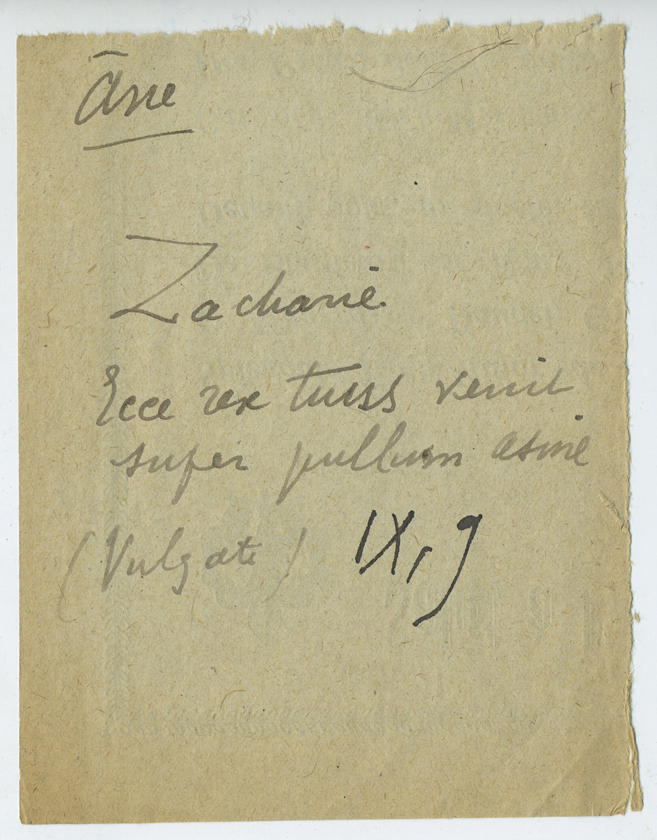 Âne
Zacharie
Ecce rex tuus venit
super pullum asine
(Vulgate) IX, 9